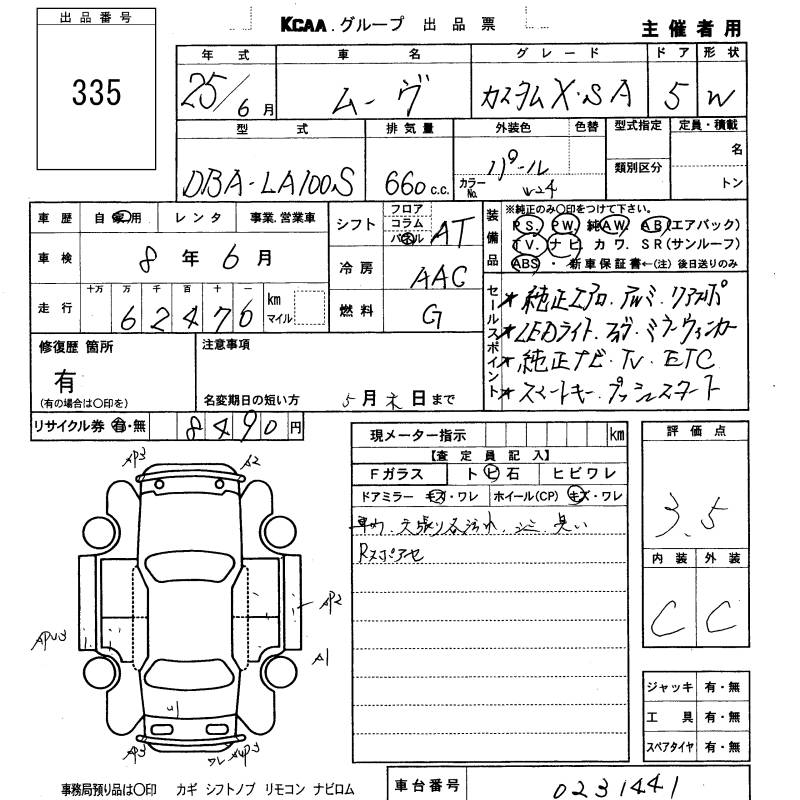 出品番号
335
KCAA.グループ 出品票
主催者用
年式 車名 グレード ドア 形状
25/6月 ムーヴ カスタムX・SA 5 W
型式 排気量 外装色 色替 型式指定 定員・積載
DBA-LA100S 660c.c. パール
カラーNo. W24
類別区分
名
トン
車歴 自家用 レンタ 事業.営業車
車検 8年6月
走行 十万 万 千 百 十 一
62476 km マイル
シフト フロア コラム パネル AT
冷房 AAC
燃料 G
装備品
※純正のみ〇印をつけて下さい。
PS. PW. 純AW. AB(エアバック)
TV. ナビ カワ. SR(サンルーフ)
ABS ・ 新車保証書←(注) 後日送りのみ
セールスポイント
★純正エアロ.アルミ.リアスポ
★LEDライト.フォグ.ミラーウィンカー
★純正ナビ.TV.ETC
★スマートキー.プッシュスタート
修復歴 箇所
有
(有の場合は〇印を)
注意事項
名変期日の短い方 5月末日まで
リサイクル券 有・無 8490円
現メーター指示 km
【査定員記入】
Fガラス トビ石 ヒビワレ
ドアミラー キズ・ワレ ホイール(CP) キズ・ワレ
車内.天張り名汚れ.シミ.臭い
Rスポアセ
評価点
3.5
内装 外装
C C
AP3 A2
AP2
APU3
A1
AP3
ジャッキ 有・無
工具 有・無
スペアタイヤ 有・無
事務局預り品は〇印 カギ シフトノブ リモコン ナビロム
車台番号 0231441